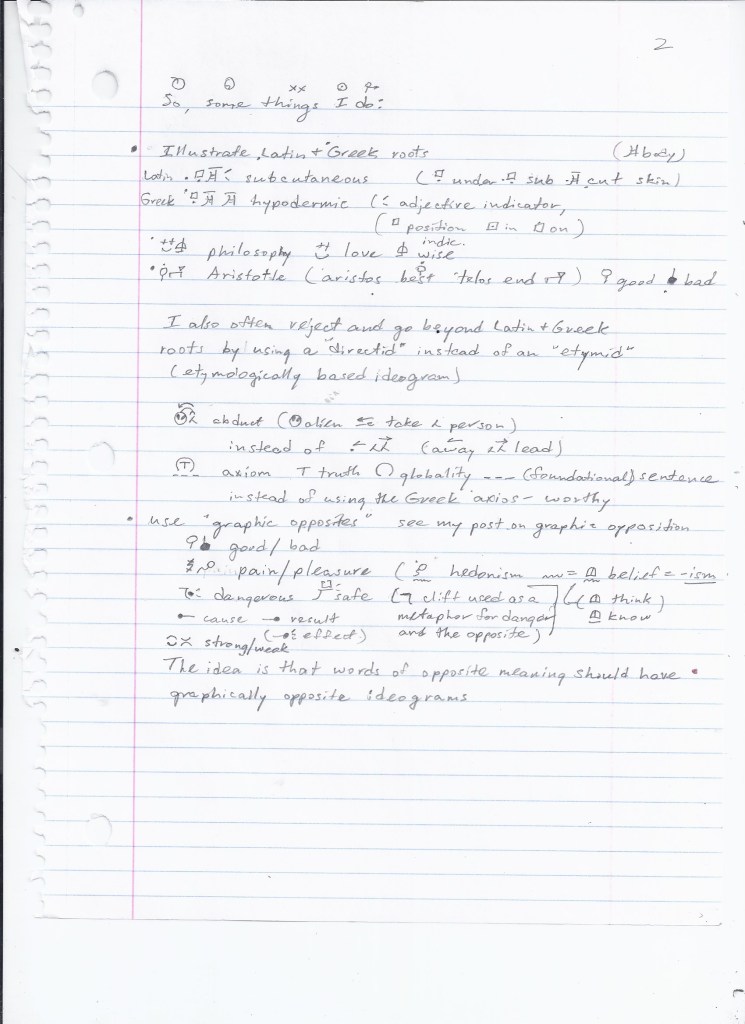 2
So, some things I do:
• Illustrate Latin + Greek roots (body)
Latin subcutaneous ( under sub cut skin)
Greek hypodermic ( adjective indicator,
( position in on)
• philosophy love wise indic.
• Aristotle (aristos best telos end) good bad
I also often reject and go beyond Latin + Greek
roots by using a "directid" instead of an "etymid"
(etymologically based ideogram)
abduct ( alien take person)
instead of (away lead)
axiom T truth ∩ globality --- (foundational) sentence
instead of using the Greek axios - worthy
• use "graphic opposites" see my post on graphic opposition
good/bad
pain/pleasure ( hedonism = belief = -ism
dangerous safe ( clift used as a ( think)
← cause → result metaphor for danger know
( effect) and the opposite)
strong/weak
The idea is that words of opposite meaning should have
graphically opposite ideograms